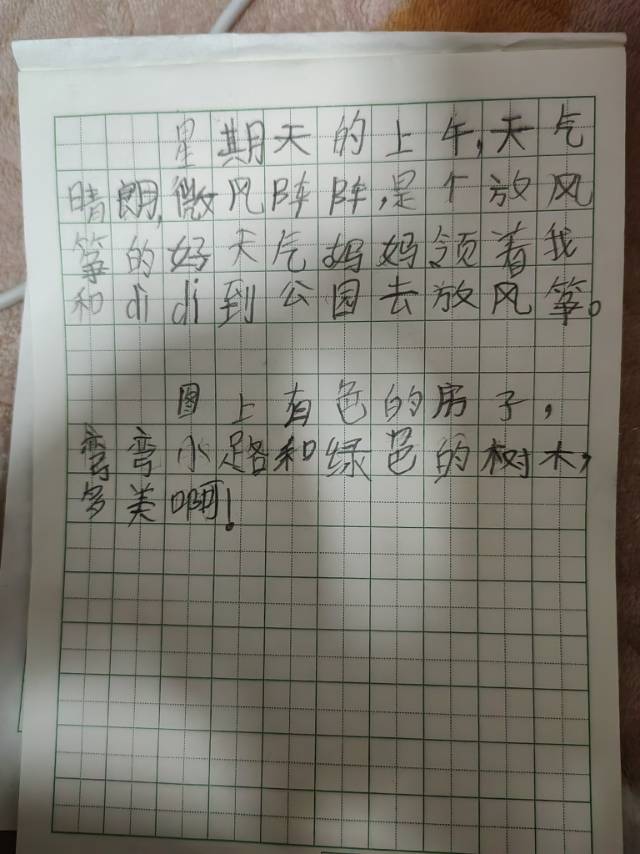 星期天的上午,天气
晴朗,微风阵阵,是个放风
筝的好天气妈妈领着我
和didi到公园去放风筝。
图上有色的房子,
弯弯小路和绿色的树木,
多美啊!